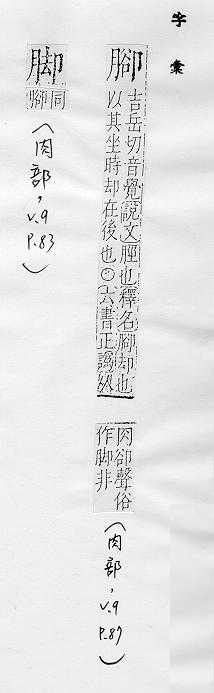 字彙
腳
吉岳切音覺說文脛也釋名腳却也
以其坐時却在後也⊙六書正譌从
肉卻聲俗
作脚非
(肉部, v.9 P.87)
脚
同
腳
(肉部, v.9 P.83)